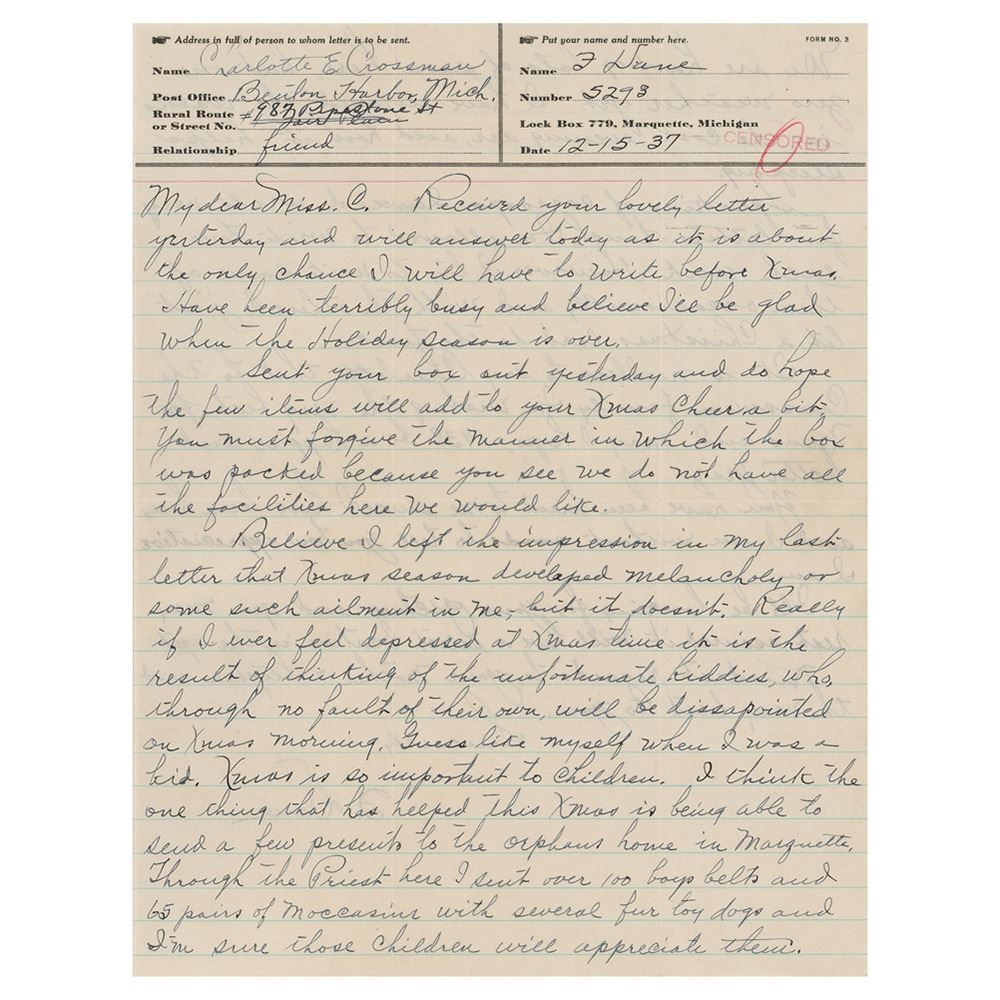 Address in full of person to whom letter is to be sent.
Name Carlotte E Crossman
Post Office Benton Harbor, Mich.
Rural Route or Street No. #987 Pipestone St
Fair Plain
Relationship friend
Put your name and number here.
FORM NO. 3
Name F Dane
Number 5293
Lock Box 779, Marquette, Michigan
Date 12-15-37
CENSORED
My dear Miss. C. Received your lovely letter
yesterday and will answer today as it is about
the only chance I will have to write before Xmas.
Have been terribly busy and believe I'll be glad
when the Holiday season is over.
Sent your box out yesterday and do hope
the few items will add to your Xmas cheer a bit.
You must forgive the manner in which the box
was packed because you see we do not have all
the facilities here we would like.
Believe I left the impression in my last
letter that Xmas season develaped melancholy or
some such ailment in me, but it doesn't. Really
if I ever feel depressed at Xmas time it is the
result of thinking of the unfortunate kiddies, who,
through no fault of their own, will be dissapointed
on Xmas morning. Guess like myself when I was a
kid. Xmas is so important to children. I think the
one thing that has helped this Xmas is being able to
send a few presents to the orphans home in Marquette.
Through the Priest here I sent over 100 boys belts and
65 pairs of moccasins with several fur toy dogs and
I'm sure those children will appreciate them.